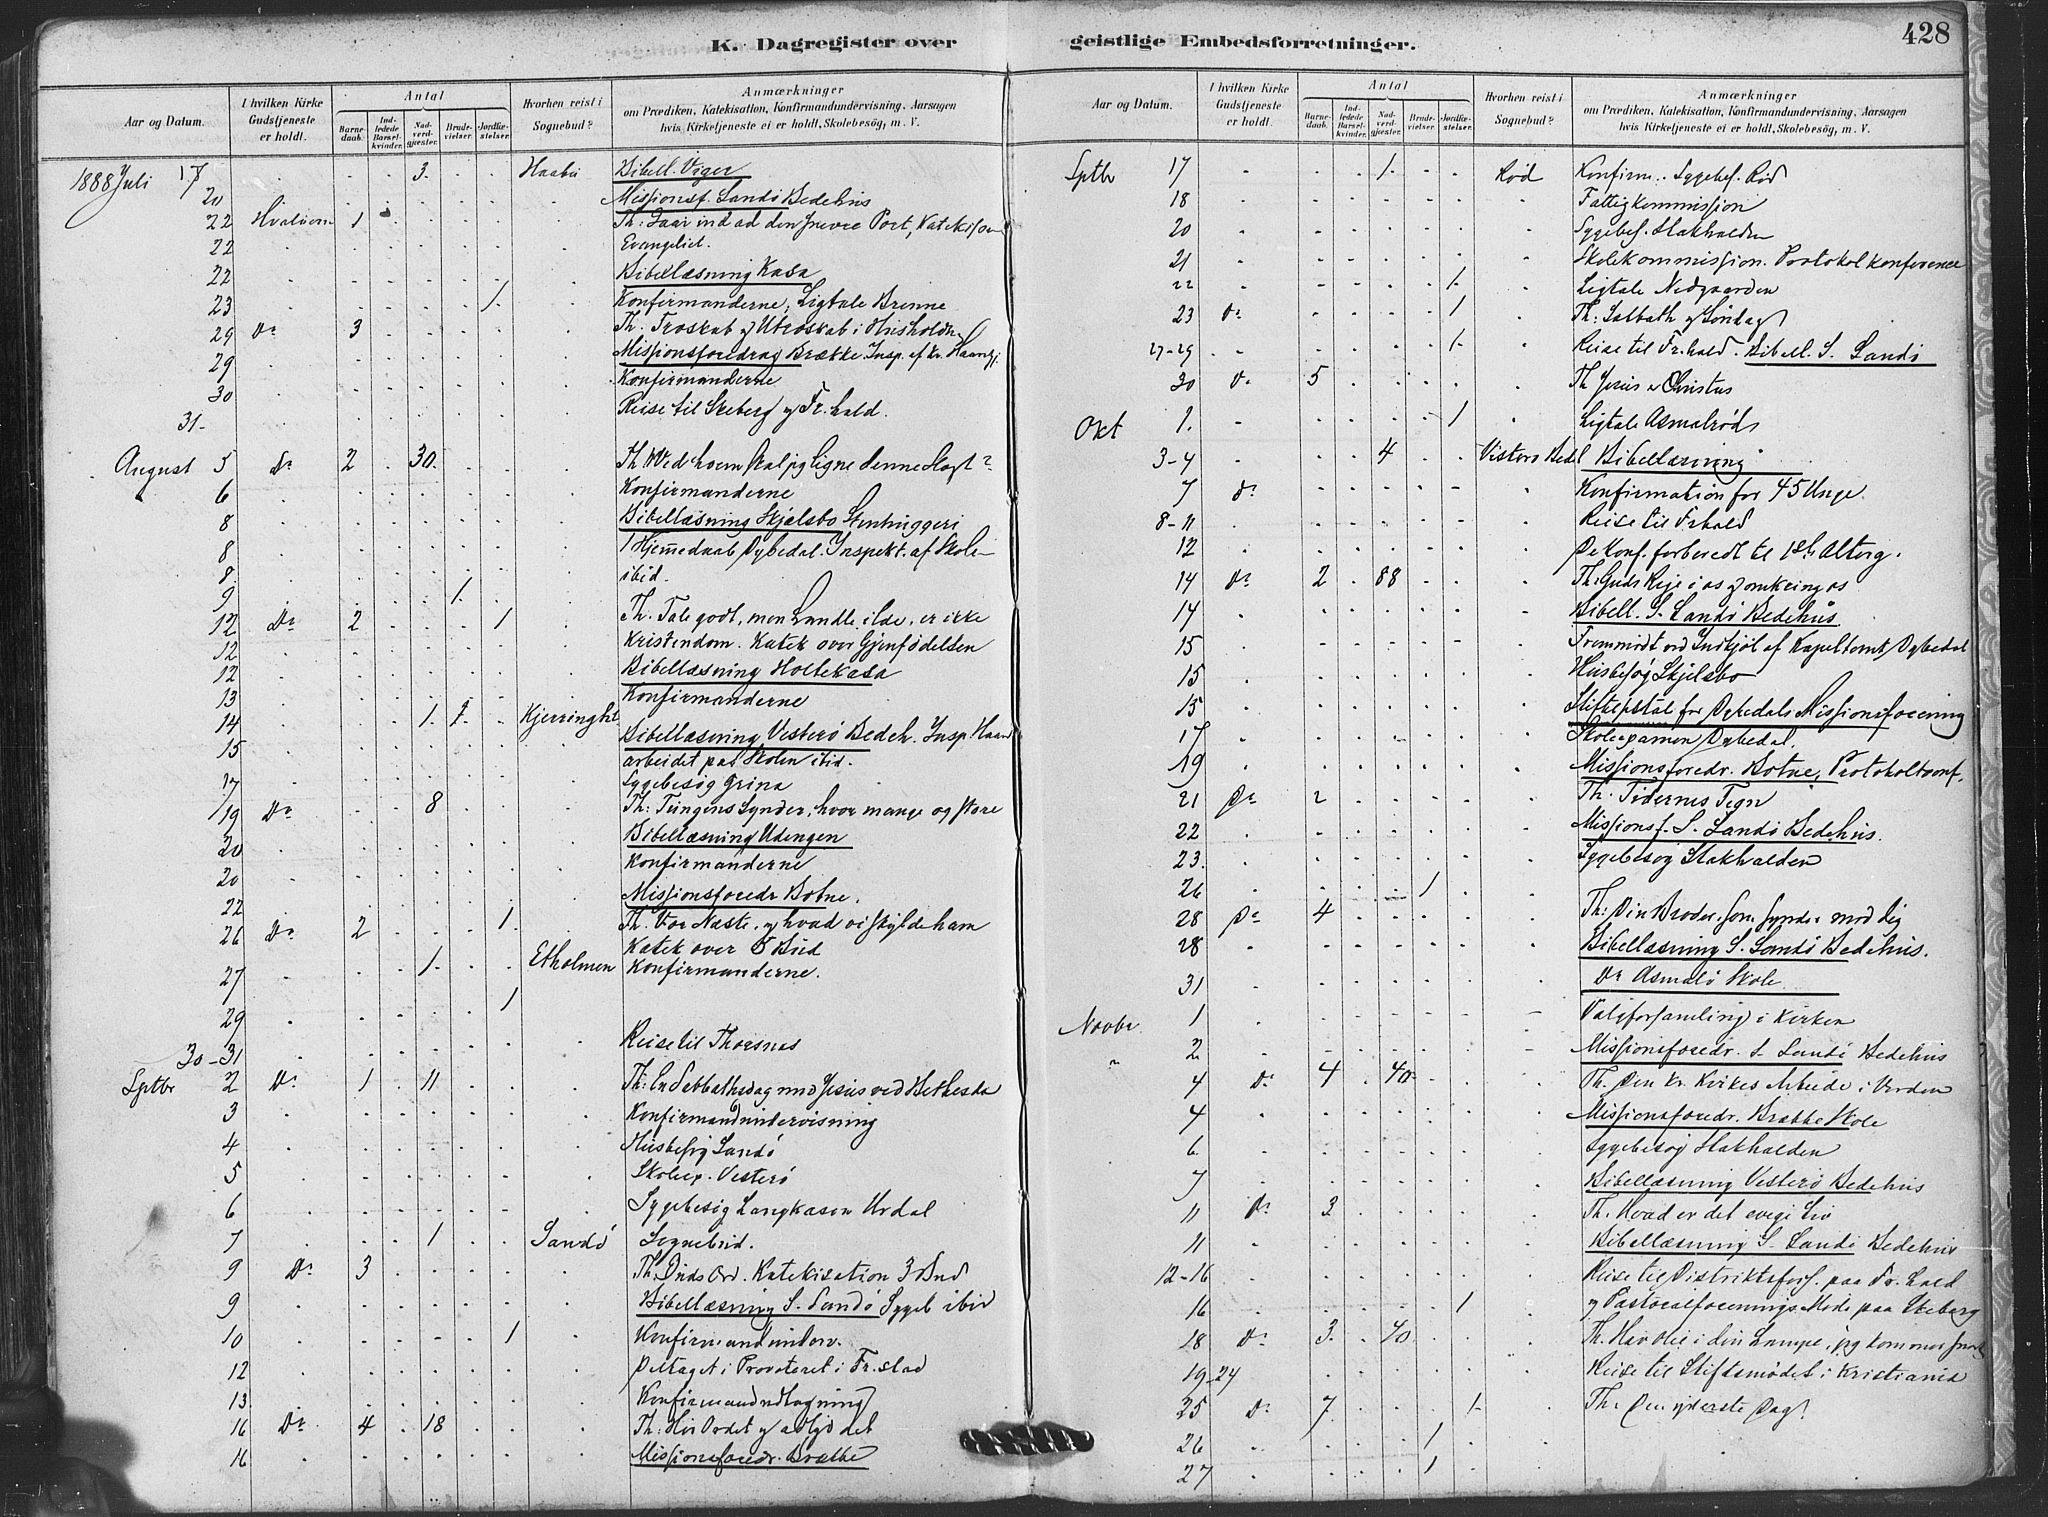 K. Dagregister over geistlige Embedsforretninger.
428
Aar og Datum.
I hvilken Kirke Gudstjeneste er holdt.
Antal
Barnedaab.
Indledede Barselkvinder.
Nadverdgjæster.
Brudevielser.
Jordfæstelser.
Hvorhen reist i Sognebud?
Anmærkninger
om Prædiken, Katekisation, Konfirmandundervisning, Aarsagen hvis Kirketjeneste ei er holdt, Skolebesøg, m. V.
1888 Juli 17 3. Bibell. Viger
20 Missionsf. Sandö Bedehus
22 Hvaløerne 1 Th: Gaar ind ad den snevre Port, Katekis over
22 Evangeliet.
22 Bibellæsning Kasa
23 1. Konfirmanderne, Ligtale Brenne
29 Do 3 Th. Troskab og Utroskab i Husholdn.
29 Missionsforedrag Brække Insp. af
30 Konfirmanderne
31. Reise til Skeberg og Fr.hald.
August 5 Do 2 30. Th Ved hvem skal jeg ligne denne Slægt?
6 Konfirmanderne
8 Bibellæsning Skjelsbo Stenhuggeri
8 1 Hjemmedaab Dybedal. Inspekt. af Skole
8 ibid.
9 1.
12 Do 2 1 Th. Tale godt, men handle ilde, er ikke
12 Kristendom. Katek over Gjenfödelsen
12 Bibellæsning Holtekasa
13 Konfirmanderne
14 1. 1. Kjerringht
15 Bibellæsning Vesterö Bedeh. Insp. Haand
arbeidet paa Skolen ibid.
17 Sygebesøg Grina
19 Do 8 Th: Tungens Synder, hvor mange og store
20 Bibellæsning Udengen
20 Konfirmanderne
22 Missionsforedr Botne.
26 Do 2 1. Th. Vor Næste, og hvad vi skylde ham
Katek over 5 Bud
27 1. Etholmen Konfirmanderne.
29 1
30-31 Reise til Thorsnæs
Sptbr 2 Do 1 11 Th: En Sabbathsdag med Jesus ved Bethesda
3 Konfirmandundervisning
4 Husbesøg Sandö
5 Skoleex. Vesterö
6 Sygebesøg Langkasen Urdal
7 1 Sandö Sognebud.
9 Do 3 Th. Guds Ord. Katekisation 3 Bud
9 Bibellæsning S. Sandö Sygeb ibid
10 1 Konfirmandunderv.
12 Deltaget i Provsteret i Fr.stad
13.
16 Do 4 18 Th: Hör Ordet og adlyd det
16 Missionsforedr. Brække
Aar og Datum.
I hvilken Kirke Gudstjeneste er holdt.
Antal
Barnedaab.
Indledede Barselkvinder.
Nadverdgjæster.
Brudevielser.
Jordfæstelser.
Hvorhen reist i Sognebud?
Anmærkninger
om Prædiken, Katekisation, Konfirmandundervisning, Aarsagen hvis Kirketjeneste ei er holdt, Skolebesøg, m. V.
Sptbr 17 1. Rød Konfirm. Sygebes. Rød
18 Fattigkommission
20 Sygebes. Stakhalden
21 Skolekommission. Protokolkonference
22 1. Ligtale Nedgaarden
23 Do 1 Th: Sabbath og Søndag
27-29 1. Reise til Fr.hald. Bibell. S. Sandö
30 Do 5 Th Jesus er Christus
Okt 1. 1 Ligtale Asmalröd
3-4 4 Bibellæsning
7 Do Konfirmation for 45 Unge.
8-11 Reise til Frhald
12 De Konf. forberedt til 1ste Alterg.
14 Do 2 88 Th: Guds Rige i os og omkring os
14 Bibell. S. Sandö Bedehus
15 Fremmødt ved Indkjøb af Kapeltomt, Dybedal
15 Husbesøg Skjelsbo
15 for Dybedals Missionsforening
17 Skoleexamen Dybedal.
19 Missionsforedr. Botne, Protokolkonf.
21 Do 2 Th. Tidernes Tegn
22 Missionsf. S. Sandö Bedehus.
23. Sygebesøg Stakhalden
26 1
28 Do 4 Th: Din Broder som synder mod dig
28 Bibellæsning S. Sandö Bedehus.
31 Do Asmalö Skole
Novbr 1 Valgforsamling i Kirken
" 2 Missionsforedr. S. Sandö Bedehus
4 Do 4 40. Th. Den kr. Kirkes Arbeide i Verden
4 Missionsforedr. Brække Skole
6 Sygebesøg Stakhalden
7 Bibellæsning Vesterö Bedehus
11 Do 3 Th. Hvad er det evige Liv
11 Bibellæsning S. Sandö Bedehus
12-16 Reise til Distriktsfors. paa Fr. hald
16 1 og Pastoralforenings Møde paa Skeberg
18 Do 3. 40. Th. Hav olie i din Lampe, jeg kommer snart
19-24 Reise til Stiftsmødet i Kristiania
25 Do 7 1. Th. Den yderste Dag.
26 1
27 1